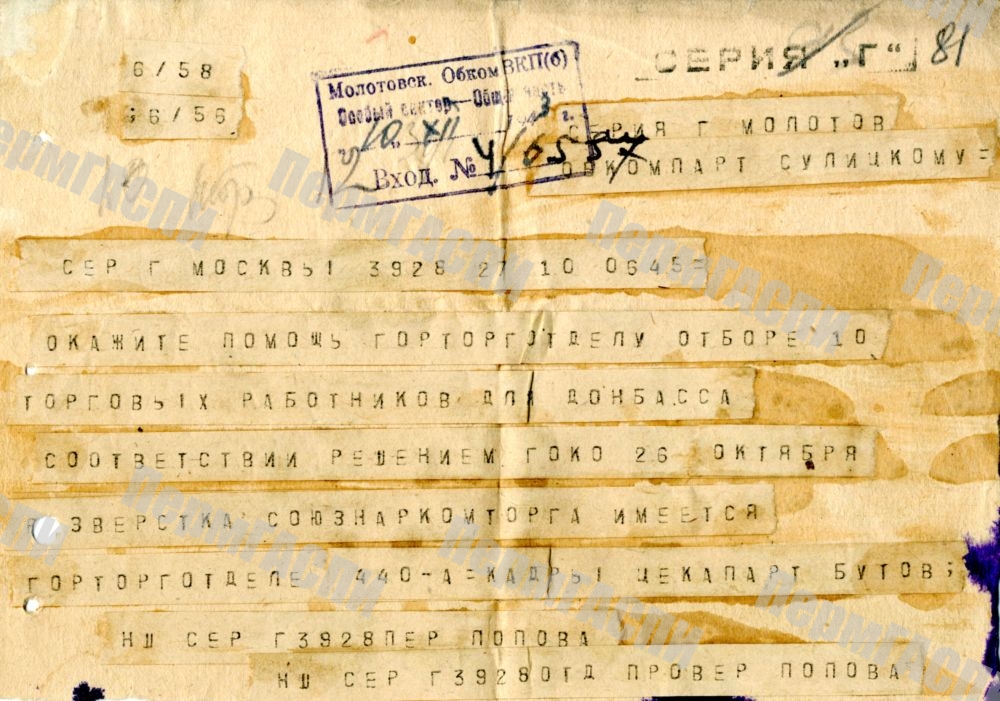 6/58
6/56
Молотовск. Обком ВКП(б)
Особый сектор—Общая часть
194 3 г.
Вход. №
СЕРИЯ „Г“
81
СЕРИЯ Г МОЛОТОВ
ОБКОМПАРТ СУЛИЦКОМУ=
СЕР Г МОСКВЫ 3928 27 10 0645=
ОКАЖИТЕ ПОМОЩЬ ГОРТОРГОТДЕЛУ ОТБОРЕ 10
ТОРГОВЫХ РАБОТНИКОВ ДЛЯ ДОНБАССА
СООТВЕТСТВИИ РЕШЕНИЕМ ГОКО 26 ОКТЯБРЯ
ЗВЕРСТКА СОЮЗНАРКОМТОРГА ИМЕЕТСЯ
ГОРТОРГОТДЕЛЕ 440-А=КАДРЫ ЦЕКАПАРТ БУТОВ;
НШ СЕР Г3928ПЕР ПОПОВА
НШ СЕР Г3928ОТД ПРОВЕР ПОПОВА
ПермГАСПИ